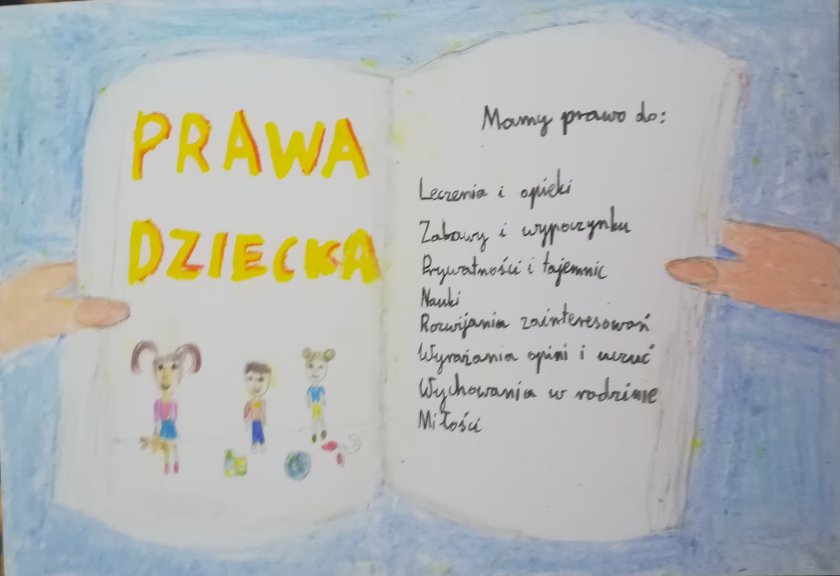 PRAWA
DZIECKA
Mamy prawo do:
Leczenia i opieki
Zabawy i wypoczynku
Prywatności i tajemnic
Nauki
Rozwijania zainteresowań
Wyrażania opini i uczuć
Wychowania w rodzinie
Miłości